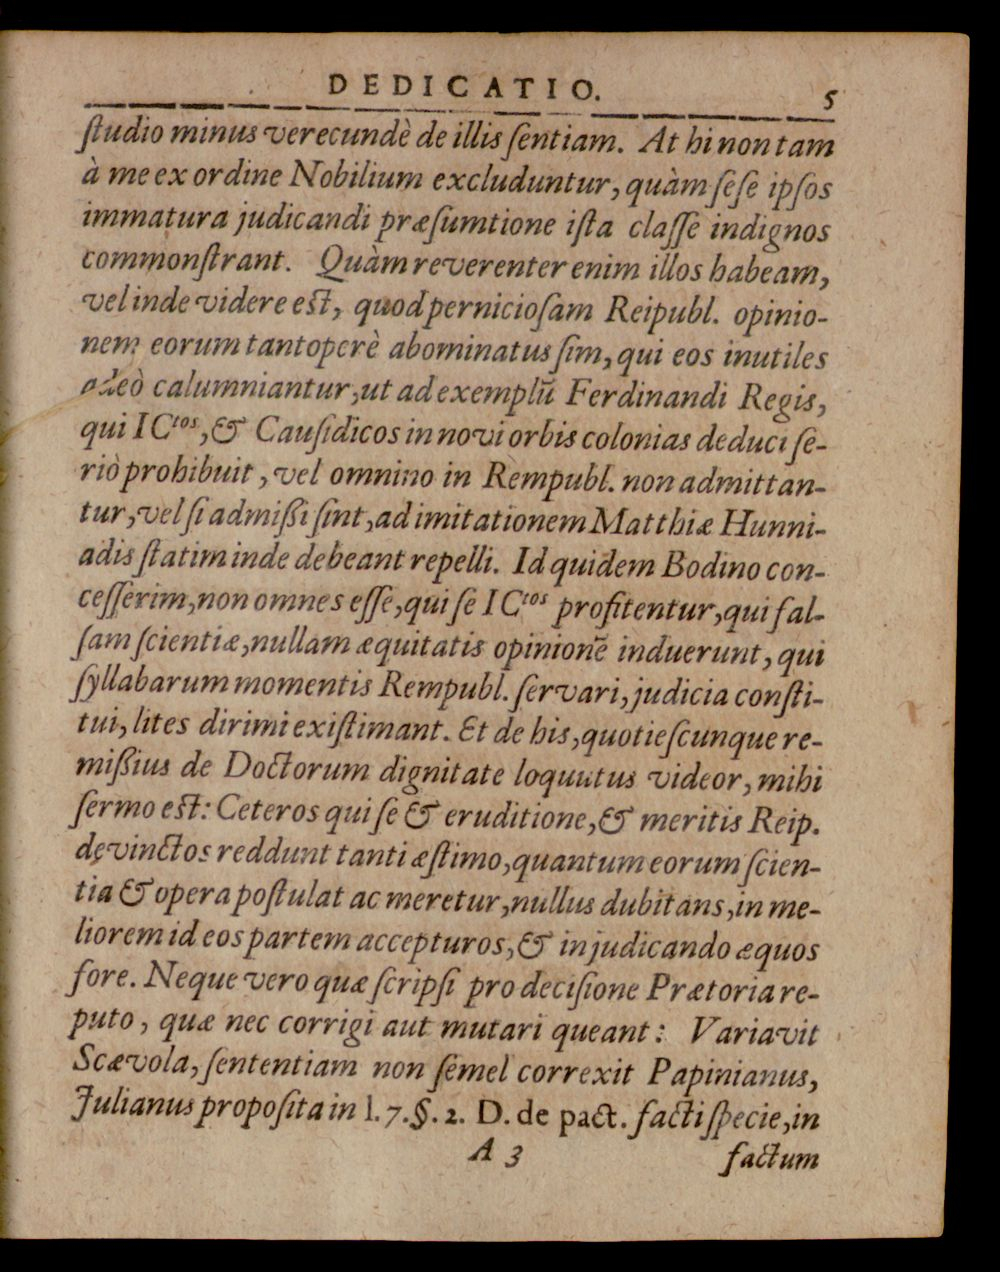 DEDICATIO. 5
ſtudio minus verecundè de illis ſentiam. At hi non tam
à me ex ordine Nobilium excluduntur, quàm ſeſe ipſos
immatura judicandi præſumtione iſta claſſe indignos
commonſtrant. Quàm reverenter enim illos habeam,
vel inde videre eſt, quod pernicioſam Reipubl. opinio-
nem eorum tantoperè abominatus ſim, qui eos inutiles
adeò calumniantur, ut ad exemplū Ferdinandi Regis,
qui ICtos, & Cauſidicos in novi orbis colonias deduci ſe-
riò prohibuit, vel omnino in Rempubl. non admittan-
tur, vel ſi admißi ſint, ad imitationem Matthiæ Hunni-
adis ſtatim inde debeant repelli. Id quidem Bodino con-
ceſſerim, non omnes eſſe, qui ſe ICtos profitentur, qui fal-
ſam ſcientiæ, nullam æquitatis opinionē induerunt, qui
ſyllabarum momentis Rempubl. ſervari, judicia conſti-
tui, lites dirimi exiſtimant. Et de his, quotieſcunque re-
mißius de Doctorum dignitate loquutus videor, mihi
ſermo eſt: Ceteros qui ſe & eruditione, & meritis Reip.
devinctos reddunt tanti æſtimo, quantum eorum ſcien-
tia & opera poſtulat ac meretur, nullus dubitans, in me-
liorem id eos partem accepturos, & in judicando æquos
fore. Neque vero quæ ſcripſi pro deciſione Prætoria re-
puto, quæ nec corrigi aut mutari queant: Variavit
Scævola, ſententiam non ſemel correxit Papinianus,
Julianus propoſita in l. 7. §. 2. D. de pact. facti ſpecie, in
A 3 factum